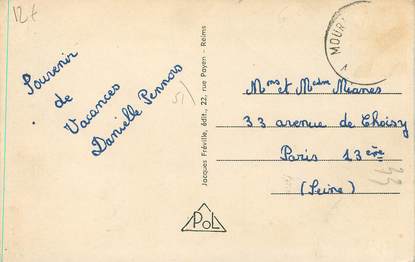 12 €
Souvenir
de
Vacances
Danielle Pennors
51
Jacques Fréville, édit., 22, rue Payen - Reims
POL
MOUR
A
Mms et Mdm Mianes
33 avenue de Choisy
Paris 13ème
(Seine)
33